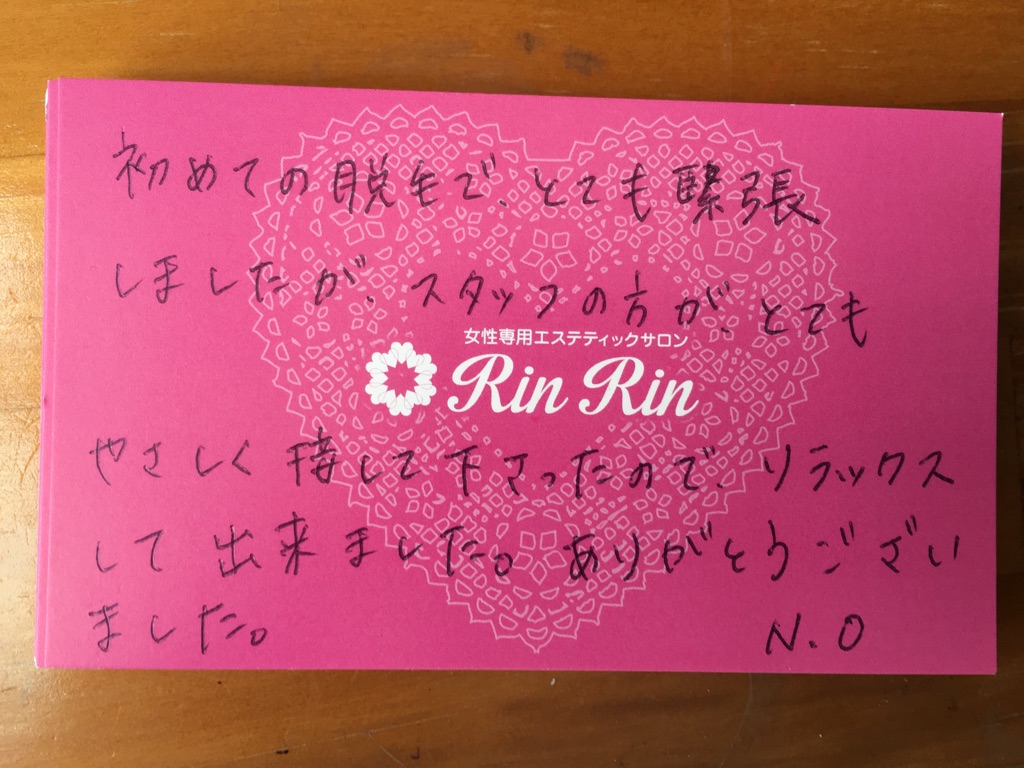 初めての脱毛で、とても緊張
しましたが、スタッフの方が、とても
女性専用エステティックサロン
Rin Rin
やさしく接して下さったので、リラックス
して出来ました。ありがとうござい
ました。
N.O